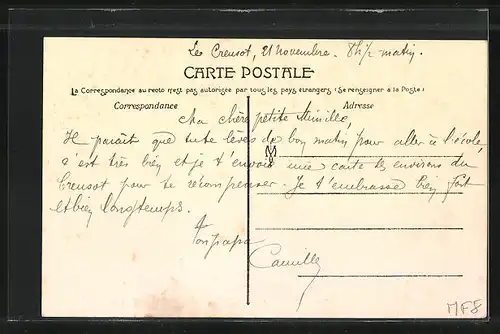 Le Creusot, 21 Novembre. 8h½ matin.
CARTE POSTALE
La Correspondance au recto n'est pas autorisée par tous les pays étrangers (Se renseigner à la Poste)
Correspondance
Adresse
Ma chère petite Mimille,
Il paraît que tu te lèves de bon matin pour aller à l'école,
c'est très bien et je t'envoie une carte des environs du
Creusot pour te récompenser. Je t'embrasse bien fort
et bien longtemps.
Ton papa
Camille
MF8